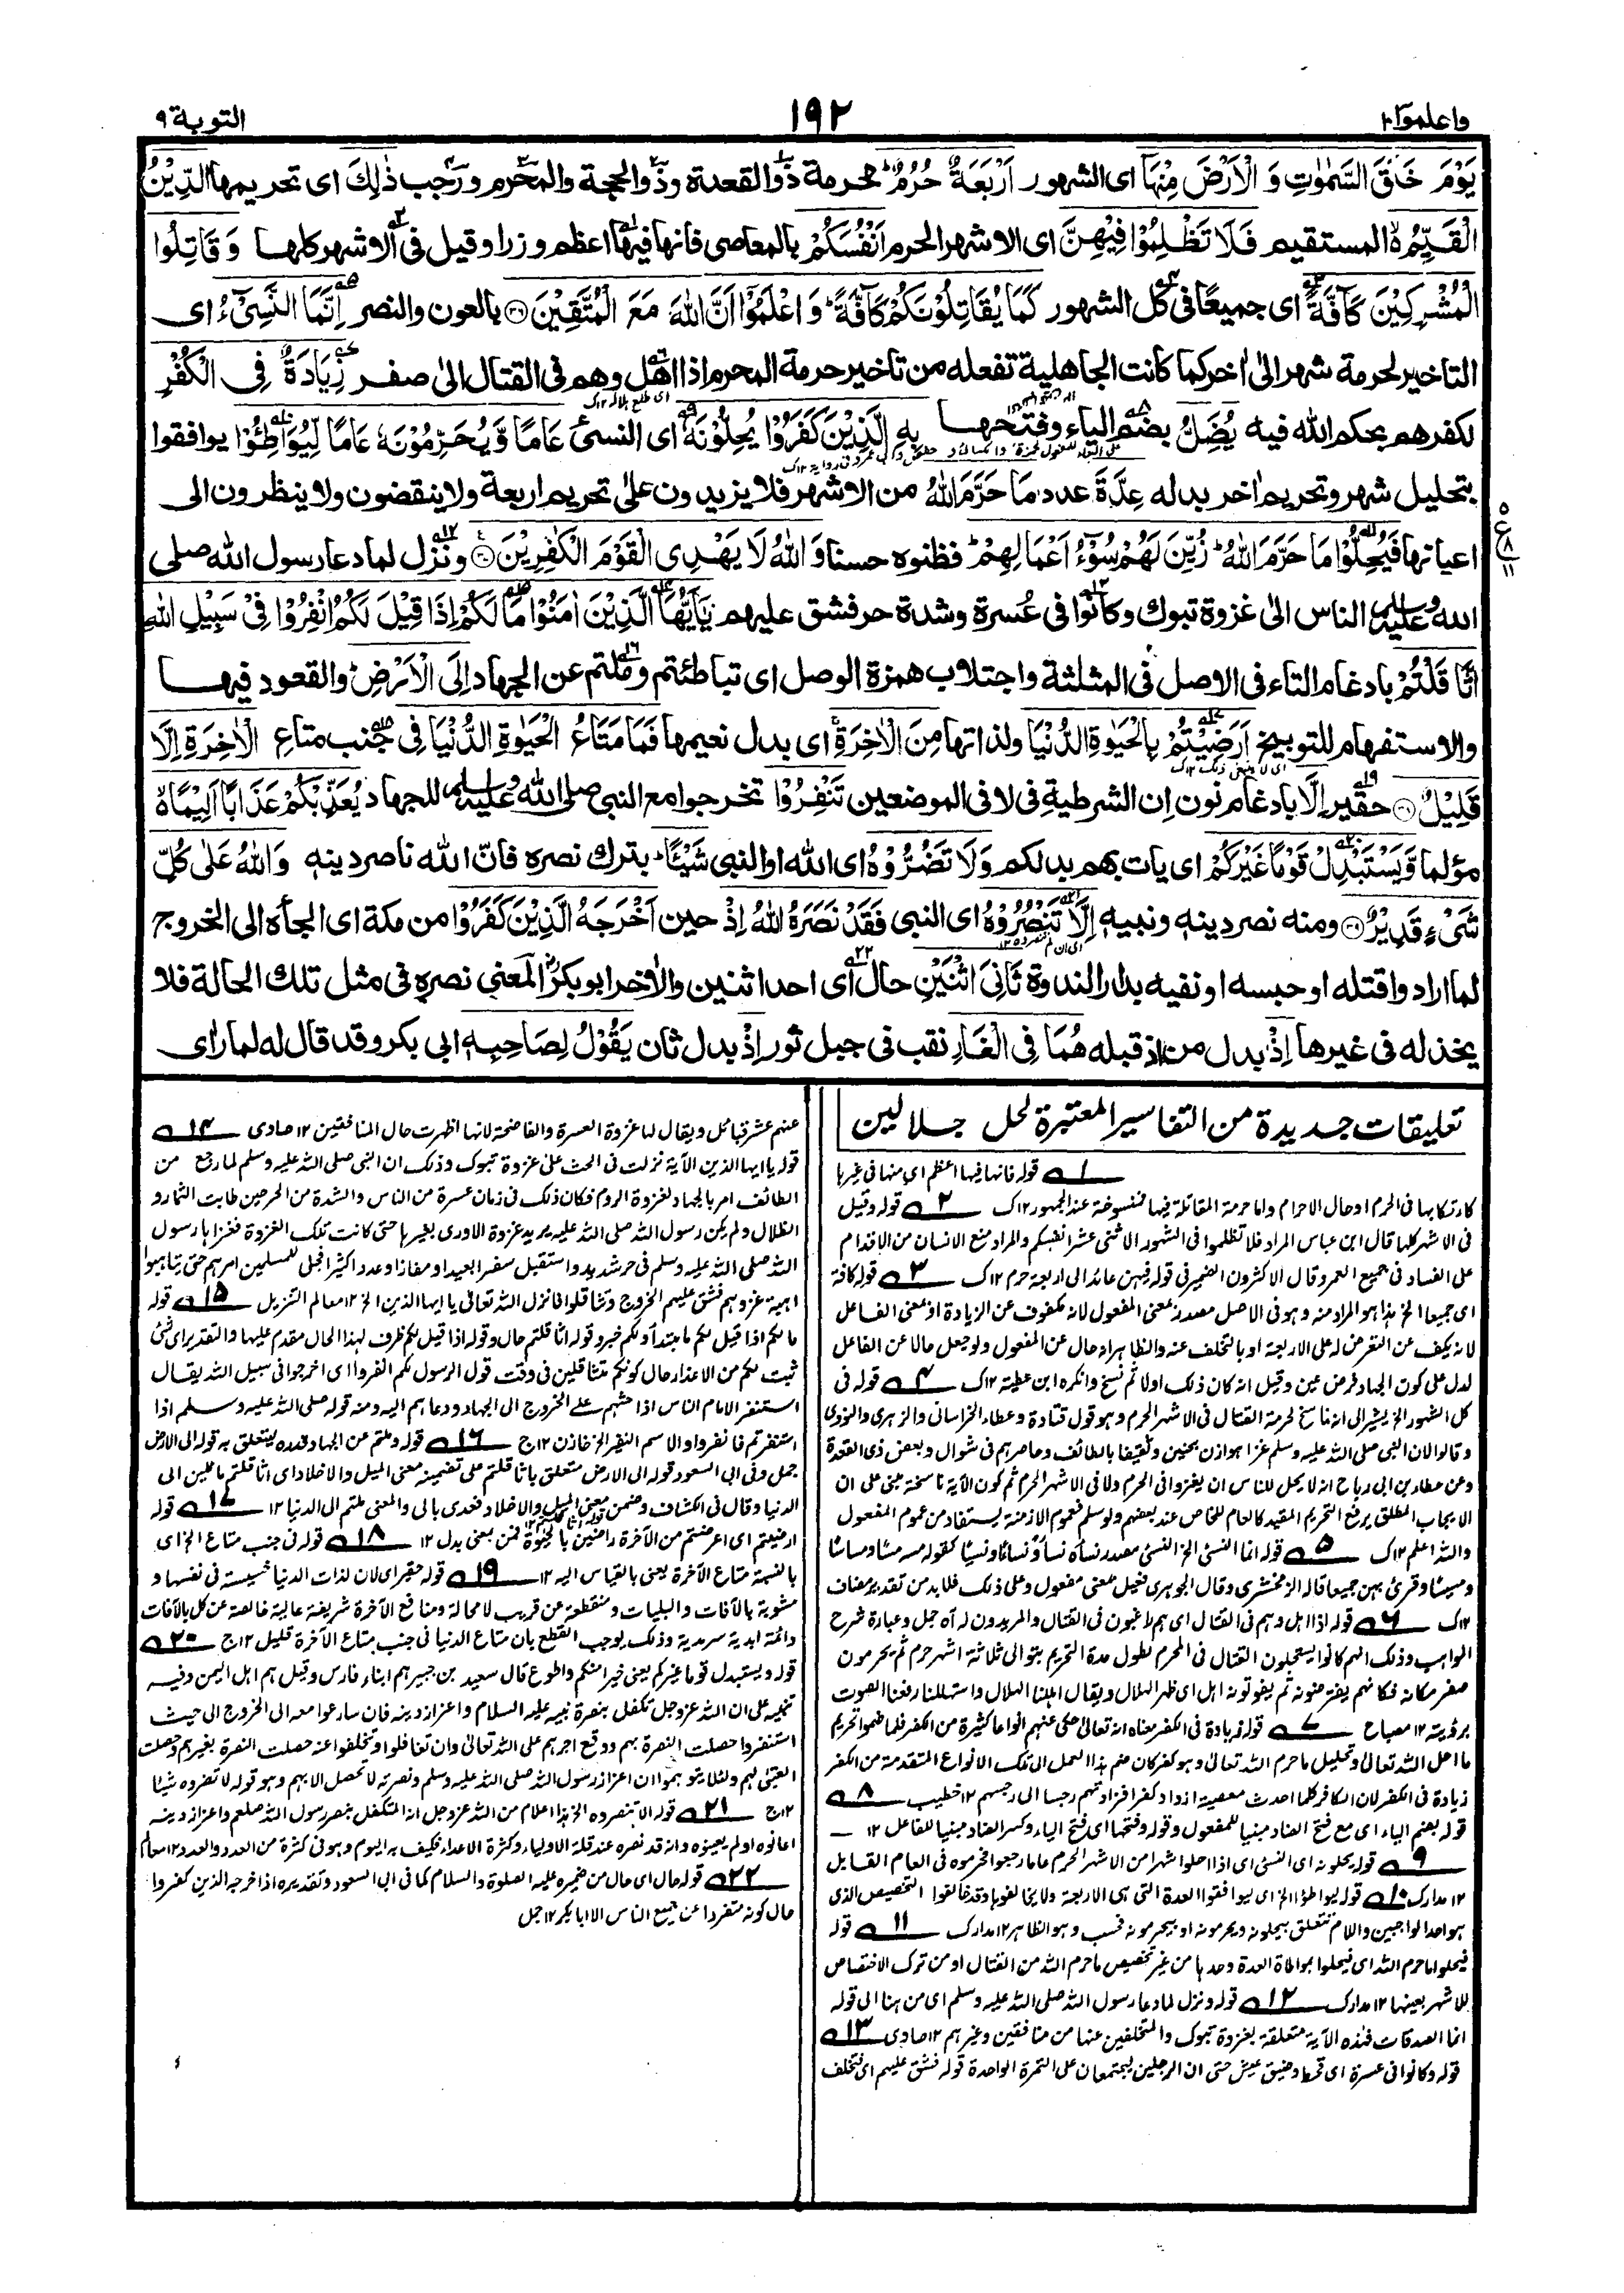 واعلموا ١٠
١٩٢
التوبة ٩
يَوْمَ خَلَقَ السَّمٰوٰتِ وَ الْاَرْضَ مِنْهَآ اى الشهور اَرْبَعَةٌ حُرُمٌ ؕ محرمة ذو القعدة وذو الحجة والمحرم ورجب ذٰلِكَ اى تحريمها الدِّيْنُ
الْقَيِّمُ ۙ المستقيم فَلَا تَظْلِمُوْا فِيْهِنَّ اى الاشهر الحرم اَنْفُسَكُمْ بالمعاصى فانها فيها اعظم وزرا وقيل فى الاشهر كلها وَ قَاتِلُوا
الْمُشْرِكِيْنَ كَآفَّةً اى جميعًا فى كل الشهور كَمَا يُقَاتِلُوْنَكُمْ كَآفَّةً ؕ وَ اعْلَمُوْٓا اَنَّ اللّٰهَ مَعَ الْمُتَّقِيْنَ ۝۳۶ بالعون والنصر اِنَّمَا النَّسِيْٓءُ اى
التاخير لحرمة شهر الىٰ اٰخر كما كانت الجاهلية تفعله من تاخير حرمة المحرم اذا اهل وهم فى القتال الىٰ صفر زِيَادَةٌ فِى الْكُفْرِ
لكفرهم بحكم الله فيه يُضَلُّ بضم الياء وفتحها بِهِ الَّذِيْنَ كَفَرُوْا يُحِلُّوْنَهٗ اى النسىءَ عَامًا وَّ يُحَرِّمُوْنَهٗ عَامًا لِّيُوَاطِـُٔوْا يوافقوا
بتحليل شهر وتحريم اٰخر بدله عِدَّةَ عدد مَا حَرَّمَ اللّٰهُ من الاشهر فلا يزيدون علىٰ تحريم اربعة ولا ينقضون ولا ينظرون الى
اعيانها فَيُحِلُّوْا مَا حَرَّمَ اللّٰهُ ؕ زُيِّنَ لَهُمْ سُوْٓءُ اَعْمَالِهِمْ ؕ فظنوه حسنا وَ اللّٰهُ لَا يَهْدِى الْقَوْمَ الْكٰفِرِيْنَ ۝۳۷ ونزل لما دعا رسول الله صلى
الله عليه وسلم الناس الىٰ غزوة تبوك وكانوا فى عُسرة وشدة حر فشق عليهم يٰٓاَيُّهَا الَّذِيْنَ اٰمَنُوْا مَا لَكُمْ اِذَا قِيْلَ لَكُمُ انْفِرُوْا فِىْ سَبِيْلِ اللّٰهِ
اثَّا قَلْتُمْ بادغام التاء فى الاصل فى المثلثة واجتلاب همزة الوصل اى تباطئتم وملتم عن الجهاد اِلَى الْاَرْضِ ؕ والقعود فيها
والاستفهام للتوبيخ اَرَضِيْتُمْ بِالْحَيٰوةِ الدُّنْيَا ولذاتها مِنَ الْاٰخِرَةِ ۚ اى بدل نعيمها فَمَا مَتَاعُ الْحَيٰوةِ الدُّنْيَا فِى جنب متاعِ الْاٰخِرَةِ اِلَّا
قَلِيْلٌ ۝۳۸ حقير اِلَّا بادغام نون اِن الشرطية فى لا فى الموضعين تَنْفِرُوْا تخرجوا مع النبى صلى الله عليه وسلم للجهاد يُعَذِّبْكُمْ عَذَابًا اَلِيْمًا ۙ
مؤلما وَّ يَسْتَبْدِلْ قَوْمًا غَيْرَكُمْ اى يات بهم بدلكم وَ لَا تَضُرُّوْهُ اى الله او النبى شَيْـًٔا ؕ بترك نصره فانّ الله ناصر دينهٖ وَ اللّٰهُ عَلٰى كُلِّ
شَىْءٍ قَدِيْرٌ ۝۳۹ ومنه نصر دينهٖ ونبيهٖ اِلَّا تَنْصُرُوْهُ اى النبى فَقَدْ نَصَرَهُ اللّٰهُ اِذْ حين اَخْرَجَهُ الَّذِيْنَ كَفَرُوْا من مكة اى الجأه الى الخروج
لما ارادوا قتله او حبسه او نفيه بدار الندوة ثَانِىَ اثْنَيْنِ حال اى احد اثنين والاٰخر ابوبكر المعنى نصره فى مثل تلك الحالة فلا
يخذله فى غيرها اِذْ بدل من اذ قبله هُمَا فِى الْغَارِ نقب فى جبل ثور اِذْ بدل ثان يَقُوْلُ لِصَاحِبِهٖ ابى بكر وقد قال له لما راٰى
تعليقات جديدة من التفاسير المعتبرة لحل جلالين
١ قوله فانها فيها اعظم اى منها فى غيرها
كارتكابها فى الحرم او حال الاحرام واما حرمة المقاتلة فيها فمنسوخة عند الجمهور ١٢ك ٢ قوله وقيل
فى الاشهر كلها قال ابن عباس المراد فلا تظلموا فى الشهور الاثنى عشر انفسكم والمراد منع الانسان من الاقدام
على الفساد فى جميع العمر وقال الاكثرون الضمير فى قوله فيهن عائد الى اربعة حرم ١٢ك ٣ قوله كافة
اى جميعا الخ هذا هو المراد منه وهو فى الاصل مصدر بمعنى المفعول لانه مكفوف عن الزيادة او بمعنى الفاعل
لانه يكف عن التعرض له على الاربعة او بالتخلف عنه والظاهر انه حال عن المفعول ولو جعل حالا عن الفاعل
لدل على كون الجهاد فرض عين وقيل انه كان ذلك اولا ثم نسخ وانكره ابن عطية ١٢ك ٤ قوله فى
كل الشهور الخ يشير الى انه ناسخ لحرمة القتال فى الاشهر الحرم وهو قول قتادة وعطاء الخراسانى والزهرى والثورى
وقالوا لان النبى صلى الله عليه وسلم غزا هوازن بحنين وثقيفا بالطائف وحاصرهم فى شوال وبعض ذى القعدة
وعن عطاء بن ابى رباح انه لا يحل للناس ان يغزوا فى الحرم ولا فى الاشهر الحرم ثم كون الآية ناسخة مبنى على ان
الايجاب المطلق يرفع التحريم المقيد كالعام للخاص عند بعضهم ولو سلم فعموم الازمنة يستفاد من عموم المفعول
والله اعلم ١٢ك ٥ قوله انما النسئ الخ النسئ مصدر نسأه نسأ ونساءً ونسيئا كقوله مسه مسا ومساسا
ومسيسا وقرئ بهن جميعا قاله الزمخشرى وقال الجوهرى فعيل بمعنى مفعول وعلى ذلك فلا بد من تقدير مضاف
١٢ك ٦ قوله اذا اهل وهم فى القتال اى هم راغبون فى القتال والمريدون له آه جمل وعبارة شرح
المواهب وذلك انهم كانوا يستحلون القتال فى المحرم لطول مدة التحريم بتوالى ثلاثة اشهر حرم ثم يحرمون
صفر مكانه فكانهم يقترضونه ثم يوفونه اهل اى ظهر الهلال ويقال اهللنا الهلال واستهللنا رفعنا الصوت
برؤيته ١٢ مصباح ٧ قوله زيادة فى الكفر معناه انه تعالىٰ حكى عنهم انواعا كثيرة من الكفر فلما ضموا تحريم
ما احل الله تعالىٰ وتحليل ما حرم الله تعالىٰ وهو كفر كان ضم هذا العمل الى تلك الانواع المتقدمة من الكفر
زيادة فى الكفر لان الكافر كلما احدث معصية ازداد كفرا فزادتهم رجسا الى رجسهم ١٢ خطيب ٨
قوله بضم الياء اى مع فتح الضاد مبنيا للمفعول وقوله وفتحها اى فتح الياء وكسر الضاد مبنيا للفاعل ١٢
٩ قوله يحلونه اى النسئ اى اذا احلوا شهرا من الاشهر الحرم عاما رجعوا فحرموه فى العام القابل
١٢ مدارك ١٠ قوله ليواطؤا الخ اى ليوافقوا العدة التى هى الاربعة ولا يخالفوها وقد خالفوا التخصيص الذى
هو احد الواجبين واللام تتعلق بيحلونه ويحرمونه او بيحرمونه فحسب وهو الظاهر ١٢ مدارك ١١ قوله
فيحلوا ما حرم الله اى فيحلوا بمواطاة العدة وحدها من غير تخصيص ما حرم الله من القتال او من ترك الاختصاص
للاشهر بعينها ١٢ مدارك ١٢ قوله ونزل لما دعا رسول الله صلى الله عليه وسلم اى من هنا الى قوله
انما الصدقات فهذه الآية متعلقة بغزوة تبوك والمتخلفين عنها من منافقين وغيرهم ١٢ صاوى ١٣
قوله وكانوا فى عسرة اى قحط وضيق عيش حتى ان الرجلين يجتمعان على التمرة الواحدة قوله فشق عليهم اى فتخلف
عنهم عشر قبائل ويقال لها غزوة العسرة والفاضحة لانها اظهرت حال المنافقين ١٢ صاوى ١٤
قوله ياايها الذين الآية نزلت فى الحث على غزوة تبوك وذلك ان النبى صلى الله عليه وسلم لما رجع من
الطائف امر بالجهاد لغزوة الروم فكان ذلك فى زمان عسرة من الناس والشدة من الحر حين طابت الثمار و
الظلال ولم يكن رسول الله صلى الله عليه يريد غزوة الا ورى بغيرها حتى كانت تلك الغزوة فغزا ها رسول
الله صلى الله عليه وسلم فى حر شديد واستقبل سفرا بعيدا ومفازا وعددا كثيرا فجلى للمسلمين امرهم حتى يتاهبوا
اهبة غزوهم فشق عليهم الخروج وتثاقلوا فانزل الله تعالىٰ ياايها الذين الخ ١٢ معالم التنزيل ١٥ قوله
مالكم اذا قيل لكم ما مبتدأ ولكم خبر وقوله اثاقلتم حال وقوله اذا قيل لكم ظرف لهذا الحال مقدم عليها والتقدير اى شئ
ثبت لكم من الاعذار حال كونكم متثاقلين فى وقت قول الرسول لكم انفروا اى اخرجوا فى سبيل الله يقال
استنفر الامام الناس اذا حثهم على الخروج الى الجهاد ودعاهم اليه ومنه قوله صلى الله عليه وسلم اذا
استنفرتم فانفروا والاسم النفير الخ خازن ١٢ج ١٦ قوله وملتم عن الجهاد قدره يتعلق به قوله الى الارض
جمل وفى ابى السعود قوله الى الارض متعلق باثاقلتم على تضمينه معنى الميل والاخلاد اى اثاقلتم مائلين الى
الدنيا وقال فى الكشاف وضمن معنى الميل والاخلاد فعدى بالى والمعنى ملتم الى الدنيا ١٢ ١٧ قوله
ارضيتم اى اعرضتم من الآخرة راضين بالحيٰوة فمن بمعنى بدل ١٢ ١٨ قوله فى جنب متاع الخ اى
بالنسبة متاع الآخرة يعنى بالقياس اليه ١٢ ١٩ قوله حقير اى لان لذات الدنيا خسيسة فى نفسها و
مشوبة بالآفات والبليات ومنقطعة عن قريب لا محالة ومنافع الآخرة شريفة عالية خالصة عن كل الآفات
دائمة ابدية سرمدية وذلك يوجب القطع بان متاع الدنيا فى جنب متاع الآخرة قليل ١٢ج ٢٠
قوله ويستبدل قوما غيركم يعنى خيرا منكم واطوع قال سعيد بن جبير هم ابناء فارس وقيل هم اهل اليمن وفيه
تنبيه على ان الله عزوجل تكفل بنصرة نبيه عليه السلام واعزاز دينه فان سارعوا معه الى الخروج الى حيث
استنفروا حصلت النصرة بهم ووقع اجرهم على الله تعالىٰ وان تغافلوا وتخلفوا عنه حصلت النصرة بغيرهم وحصلت
العتبى لهم ولئلا يتوهموا ان اعزاز رسول الله صلى الله عليه وسلم ونصرته لا تحصل الا بهم وهو قوله لا تضروه شيئا
١٢ج ٢١ قوله الا تنصروه الخ هذا اعلام من الله عزوجل انه المتكفل بنصر رسول الله صلعم واعزاز دينه
اعانوه او لم يعينوه وانه قد نصره عند قلة الاولياء وكثرة الاعداء فكيف به اليوم وهو فى كثرة من العدد والعدد ١٢ معالم
٢٢ قوله حال اى حال من ضميره عليه الصلوة والسلام كما فى ابى السعود وتقديره اذ اخرجه الذين كفروا
حال كونه متفردا عن جميع الناس الا ابابكر ١٢ جمل